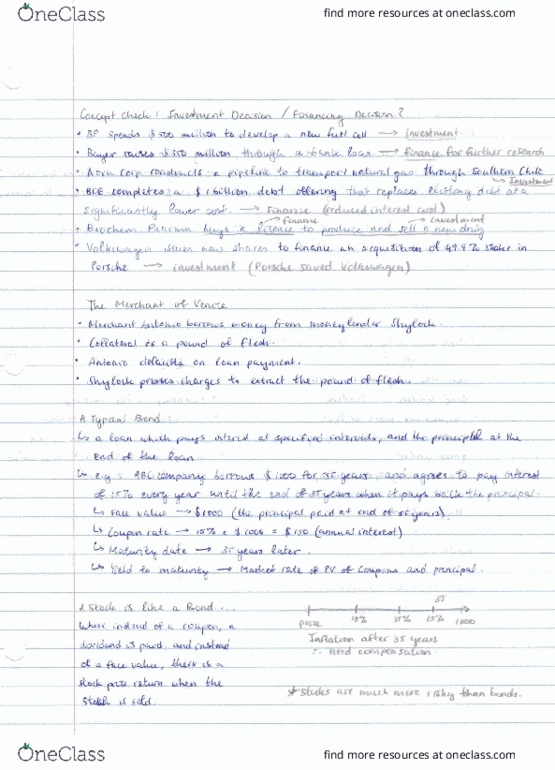 OneClass
find more resources at oneclass.com
Concept check: Investment Decision / Financing Decision?
• BP spends $500 million to develop a new fuel cell → investment
• Bayer raises $350 million through a bank loan → finance for further research
• Corp constructs a pipeline to transport natural gas through Southern Chile
→ Investment
• BCE completes a $1 billion debt offering that replaces existing debt at a
significantly lower cost. → Finance (reduced interest cost)
→ finance → investment
• Biochem Pharma buys a licence to produce and sell a new drug
• Volkswagen issues new shares to finance an acquisition of 49.9% stake in
Porsche → investment (Porsche saved Volkswagen)
The Merchant of Venice
• Merchant Antonio borrows money from moneylender Shylock.
• Collateral is a pound of flesh.
• Antonio defaults on loan payment.
• Shylock presses charges to extract the pound of flesh.
A Typical Bond
↳ a loan which pays interest at specified intervals, and the principal at the
end of the loan.
↳ e.g. ABC company borrows $1000 for 35 years, and agrees to pay interest
of 15% every year until the end of 35 years when it pays back the principal.
↳ Face value → $1000 (the principal paid at end of 35 years).
↳ Coupon rate → 15% x $1000 = $150 (annual interest)
↳ Maturity date → 35 years later.
↳ Yield to maturity → Market rate of PV of coupons and principal.
A Stock is like a Bond...
Where instead of a coupon, a
dividend is paid, and instead
of a face value, there is a
stock price return when the
stock is sold.
35
15% 15% 15% 1000
Inflation after 35 years
∴ need compensation.
* Stocks are much more risky than bonds.
OneClass
find more resources at oneclass.com